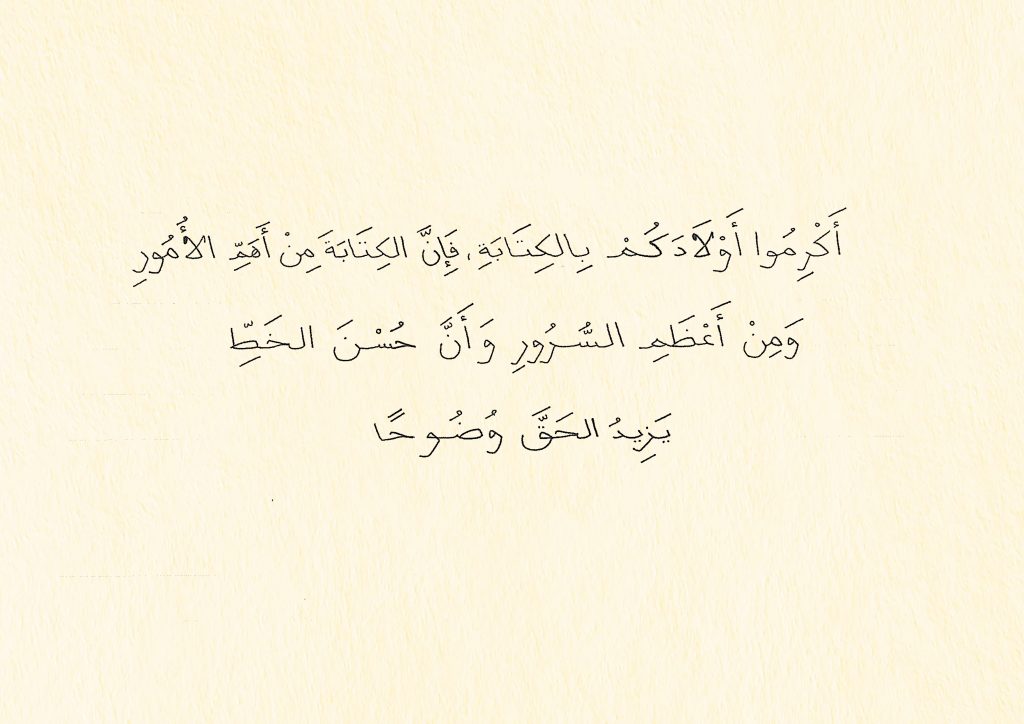 أَكْرِمُوا أَوْلَادَكُمْ بِالكِتَابَةِ، فَإِنَّ الكِتَابَةَ مِنْ أَهَمِّ الأُمُورِ
وَمِنْ أَعْظَمِ السُّرُورِ وَأَنَّ حُسْنَ الخَطِّ
يَزِيدُ الحَقَّ وُضُوحًا